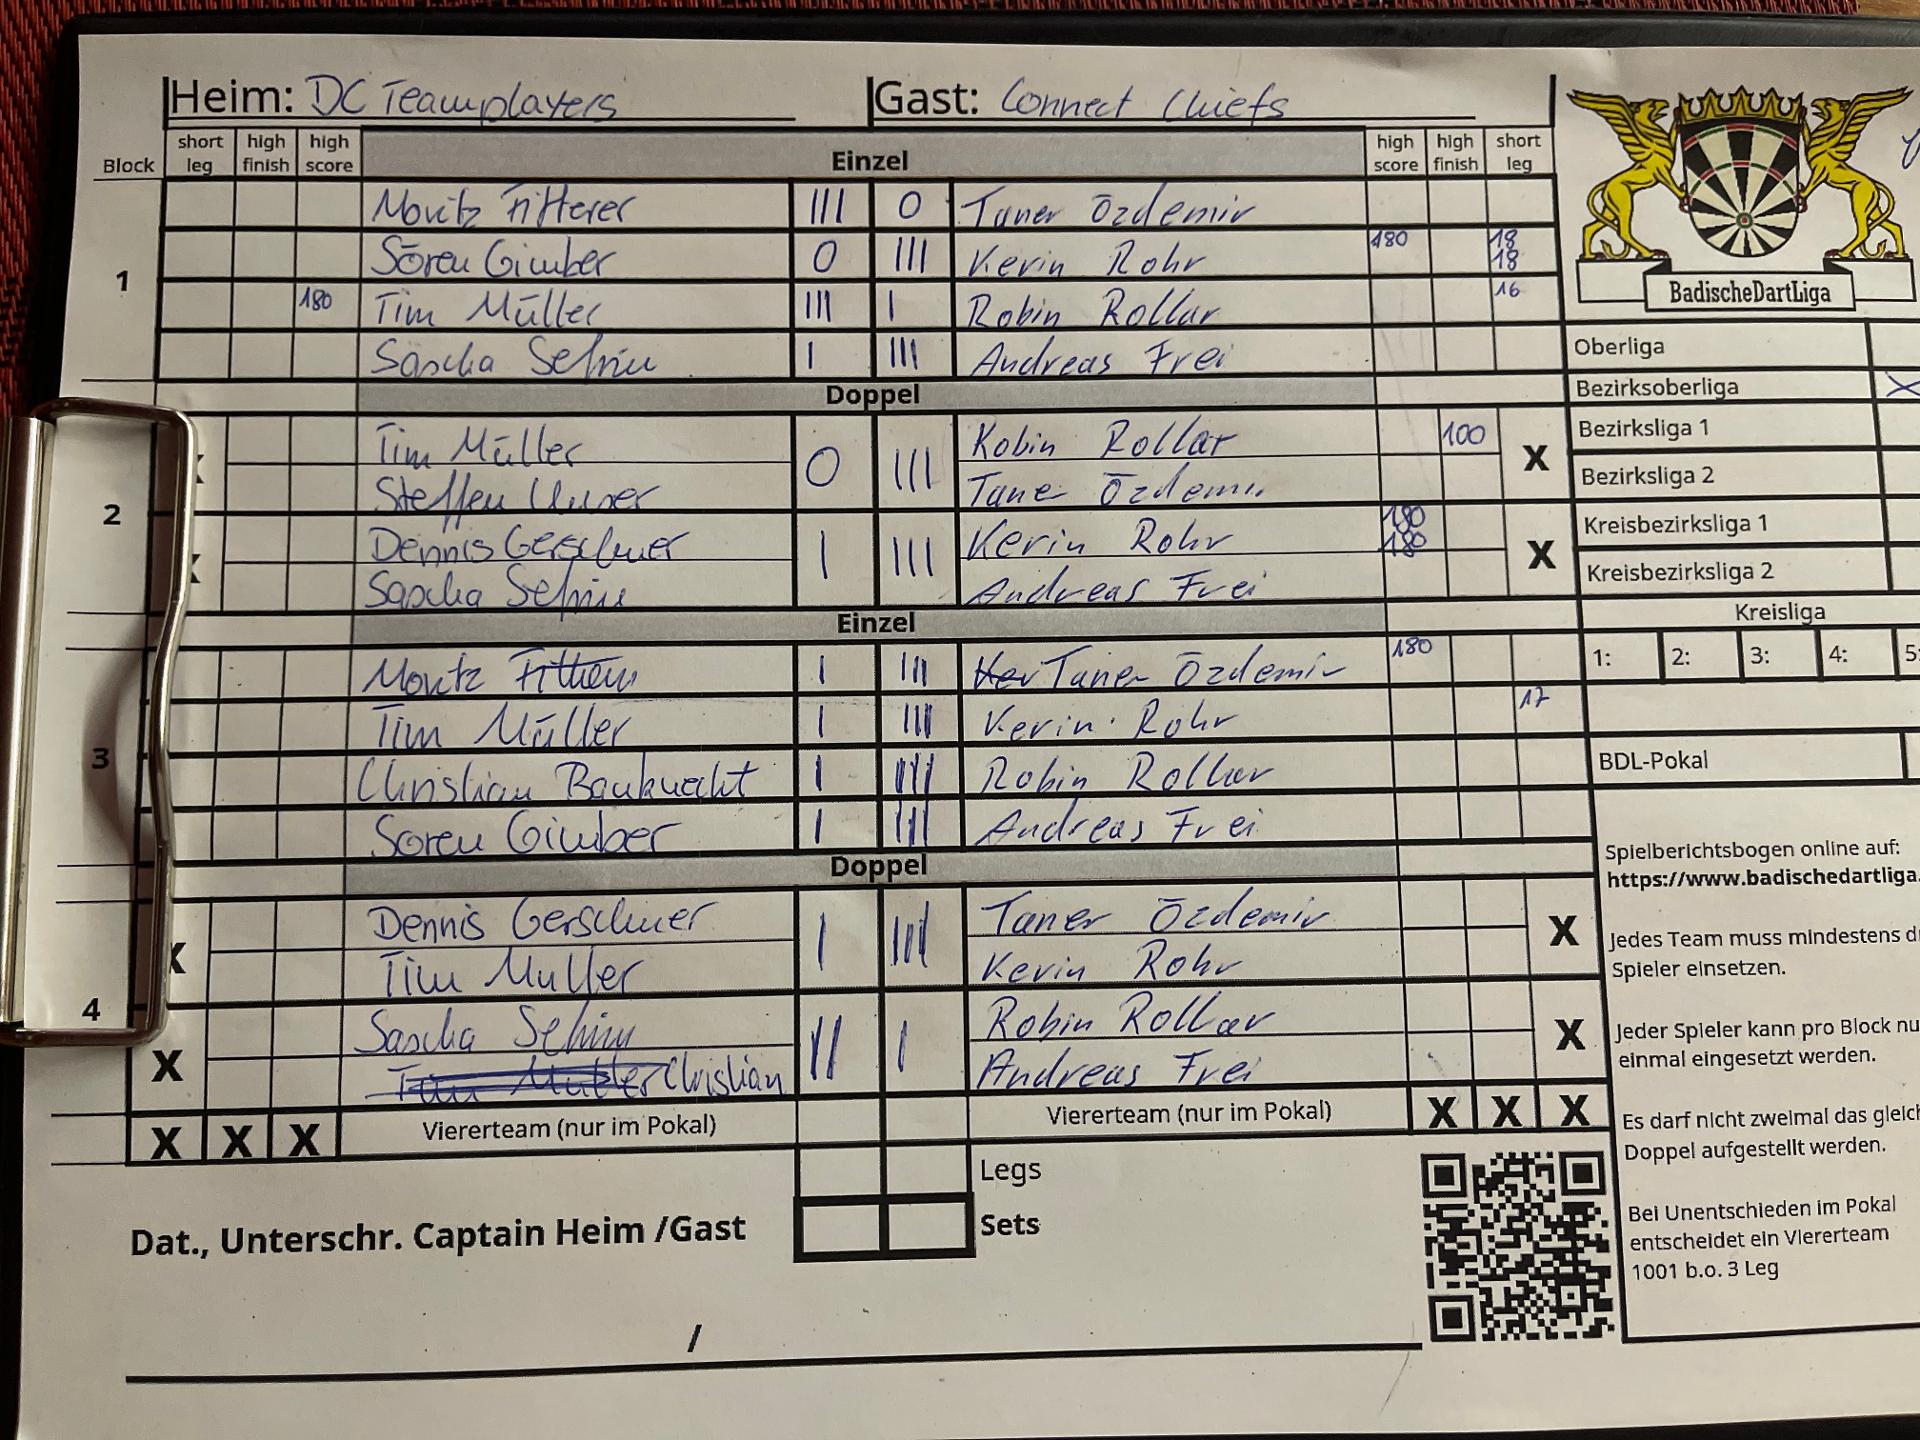 Heim: DC Teamplayers Gast: Connect Chiefs
Block short leg high finish high score Einzel high score high finish short leg
1
Moritz Fitterer III 0 Taner Özdemir
Sören Gimber 0 III Kevin Rohr 180 18 18
180 Tim Müller III I Robin Rollar 16
Sascha I III Andreas Frei
Doppel
2
Tim Müller 0 III Robin Rollar 100 X
Steffen Taner Özdemir
Dennis Gerschner I III Kevin Rohr 180 180 X
Sascha Andreas Frei
Einzel
3
Moritz Fitterer I III Taner Özdemir 180
Tim Müller I III Kevin Rohr 17
Christian Bauknecht I III Robin Rollar
Sören Gimber I III Andreas Frei
Doppel
4
X Dennis Gerschner I III Taner Özdemir X
Tim Müller Kevin Rohr
X Sascha II I Robin Rollar X
Christian Andreas Frei
X X X Viererteam (nur im Pokal) Viererteam (nur im Pokal) X X X
Legs
Sets
Dat., Unterschr. Captain Heim /Gast
/
BadischeDartLiga
Oberliga
Bezirksoberliga X
Bezirksliga 1
Bezirksliga 2
Kreisbezirksliga 1
Kreisbezirksliga 2
Kreisliga
1: 2: 3: 4: 5:
BDL-Pokal
Spielberichtsbogen online auf:
https://www.badischedartliga.
Jedes Team muss mindestens
Spieler einsetzen.
Jeder Spieler kann pro Block
einmal eingesetzt werden.
Es darf nicht zweimal das
Doppel aufgestellt werden.
Bei Unentschieden im Pokal
entscheidet ein Viererteam
1001 b.o. 3 Leg